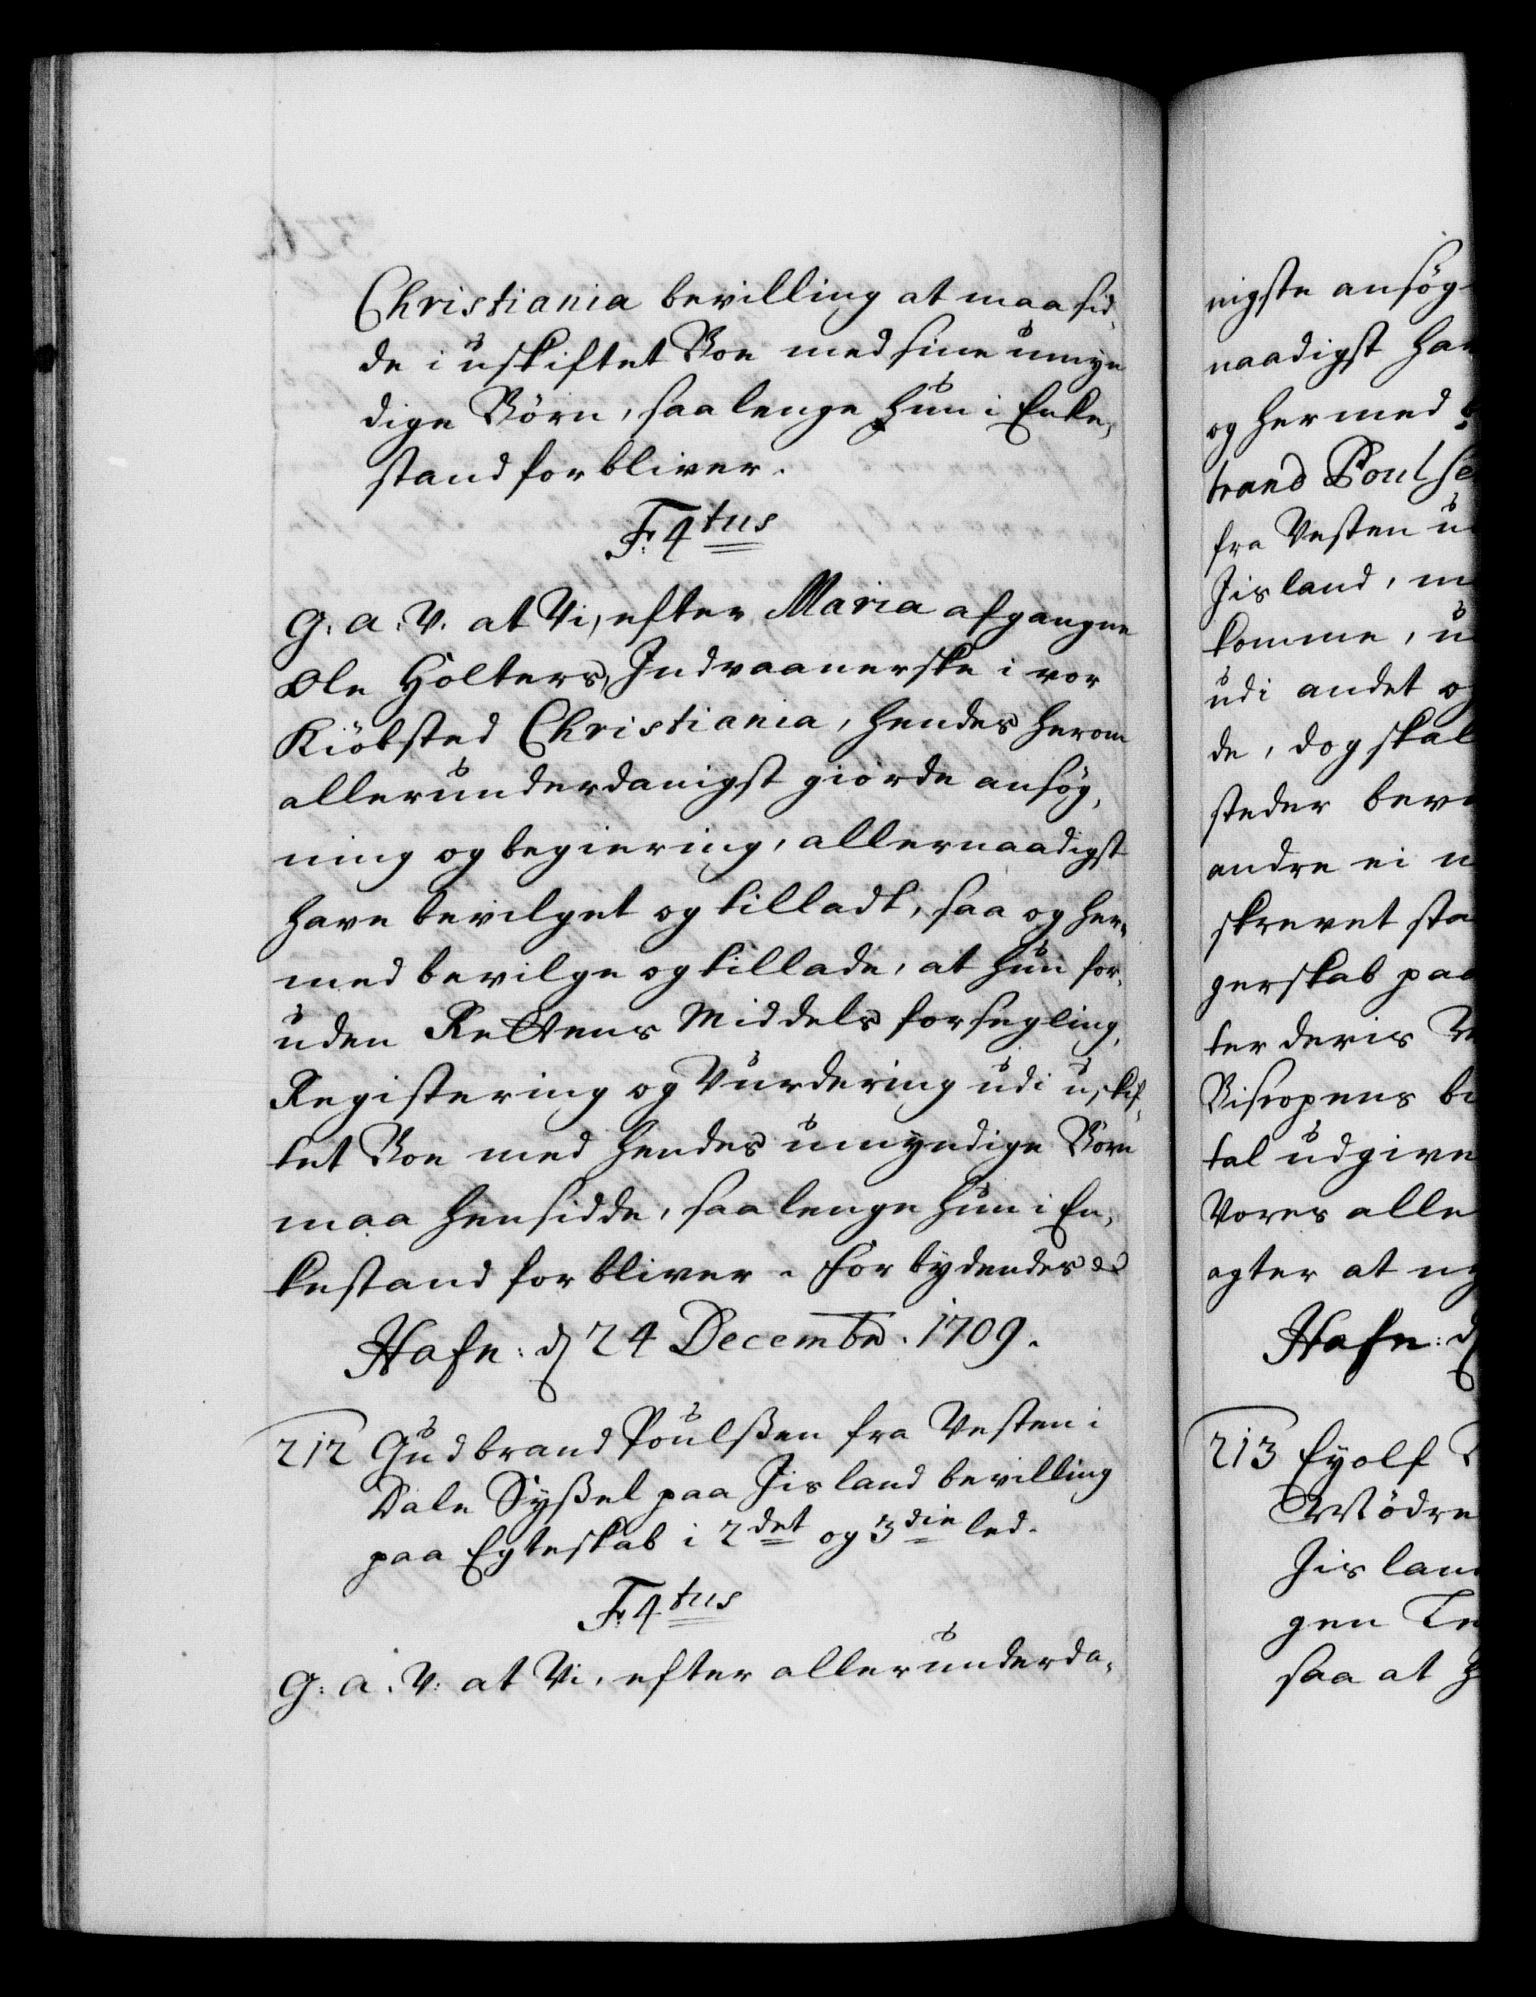 Christiania bevilling at maa sid-
de i uskiftet Boe med sine umyn
dige Börn, saa lenge hun i Enke-
stand forbliver.
F: 4tus
G: A: V: at Vi, efter Maria afgangne
Ole Holters, Indvaanerske i vor
Kiöbsted Christiania, hendes herom
allerunderdanigst giorde ansög-
ning og begiering, allernaadigst
have bevilget og tilladt, saa og her-
med bevilge og tillade, at hun for-
uden Rettens Middels forsegling,
Registering og Vurdering udi uskif-
tet Boe med hendes umyndige Börn
maa hensidde, saa lenge hun i En-
kestand forbliver. Forbydendes &c
Hafn: d 24 Decembr. 1709.
212 Gudbrand Poulßen fra Vesten i
Dale Syßel paa Jisland bevilling
paa Egteskab i 2det og 3die led.
F: 4tus
G: A: V: at Vi, efter allerunderda-
nigste ansög-
naadigst hav
og hermed
brand Poulse
fra Vesten
Jisland, m
komme, u
udi andet og
de, dog skal
steder bev
andre ei
skrevet sta
gerskab paa
ter deris
Biscopens be
tal udgive
Vores alle
agter at
Hafn: d
213 Eyolf
Mödre
Jislan
gen
saa at